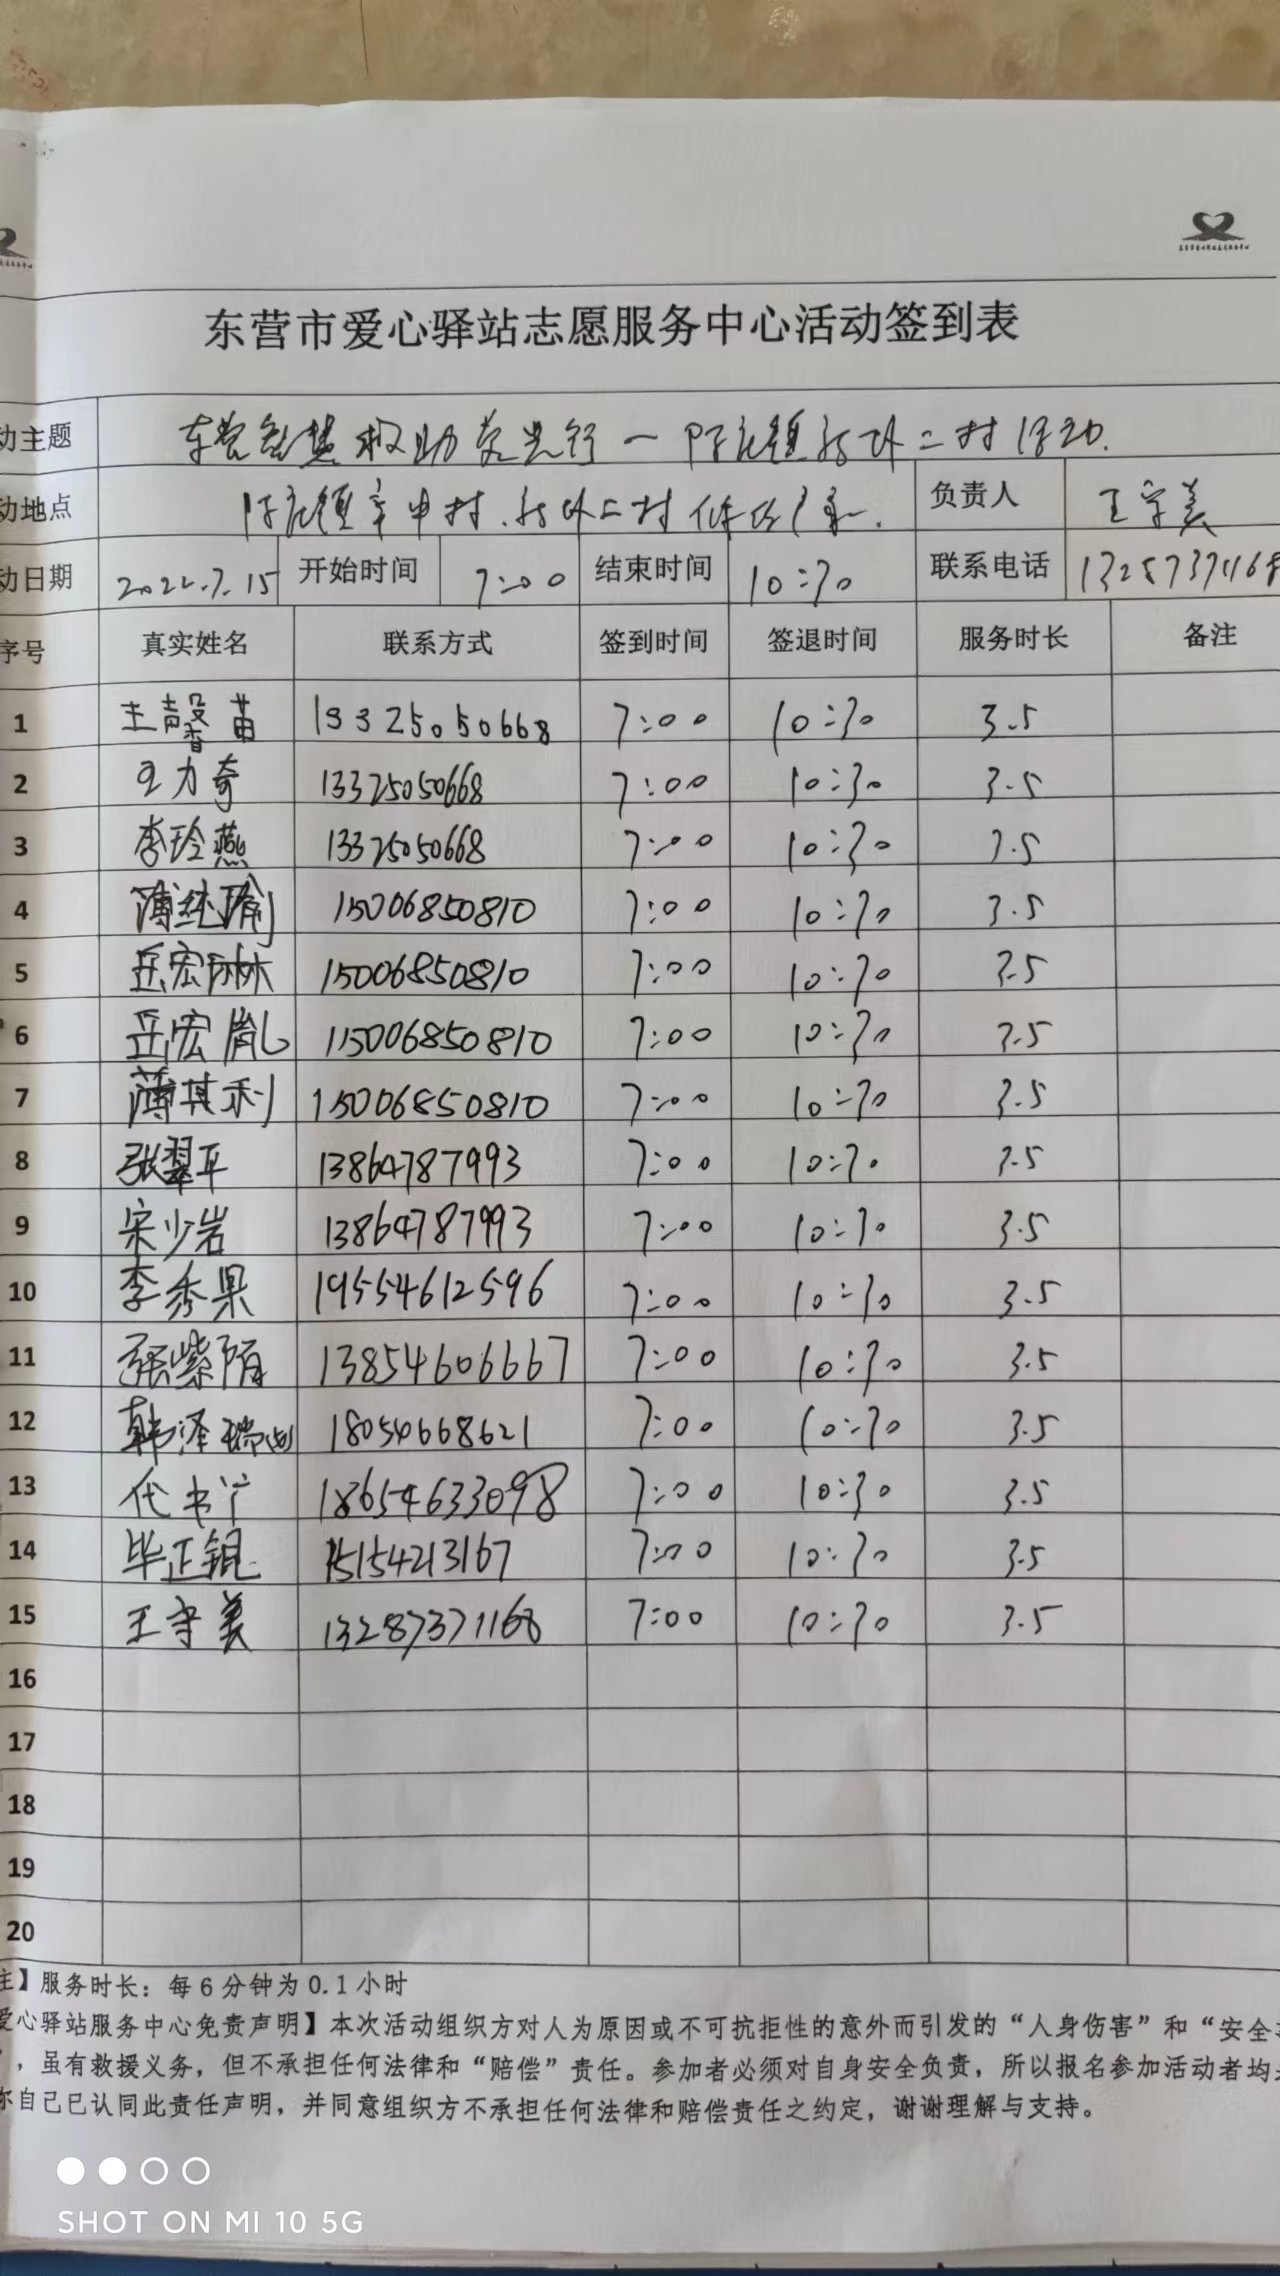 东营市爱心驿站志愿服务中心活动签到表
动主题 东营 救助 先行一 陈庄镇 二村活动.
动地点 陈庄镇 中村. 二村 负责人 王守美
动日期 2022.7.15 开始时间 7:00 结束时间 10:30 联系电话 13287371168
序号 真实姓名 联系方式 签到时间 签退时间 服务时长 备注
1 王馨苗 13325050668 7:00 10:30 3.5
2 王力奇 13325050668 7:00 10:30 3.5
3 李玲燕 13325050668 7:00 10:30 3.5
4 薄纯瑜 15006850810 7:00 10:30 3.5
5 岳宏琳 15006850810 7:00 10:30 3.5
6 岳宏胤 15006850810 7:00 10:30 3.5
7 薄其利 15006850810 7:00 10:30 3.5
8 张翠平 13864787993 7:00 10:30 3.5
9 宋少岩 13864787993 7:00 10:30 3.5
10 李秀果 19554612596 7:00 10:30 3.5
11 张紫陌 13854606667 7:00 10:30 3.5
12 韩泽瑞 18054668621 7:00 10:30 3.5
13 代书 18654633098 7:00 10:30 3.5
14 毕正锟 15154213167 7:00 10:30 3.5
15 王守美 13287371168 7:00 10:30 3.5
16
17
18
19
20
注】服务时长：每6分钟为0.1小时
爱心驿站服务中心免责声明】本次活动组织方对人为原因或不可抗拒性的意外而引发的“人身伤害”和“安全
”，虽有救援义务，但不承担任何法律和“赔偿”责任。参加者必须对自身安全负责，所以报名参加活动者均
你自己已认同此责任声明，并同意组织方不承担任何法律和赔偿责任之约定，谢谢理解与支持。
SHOT ON MI 10 5G